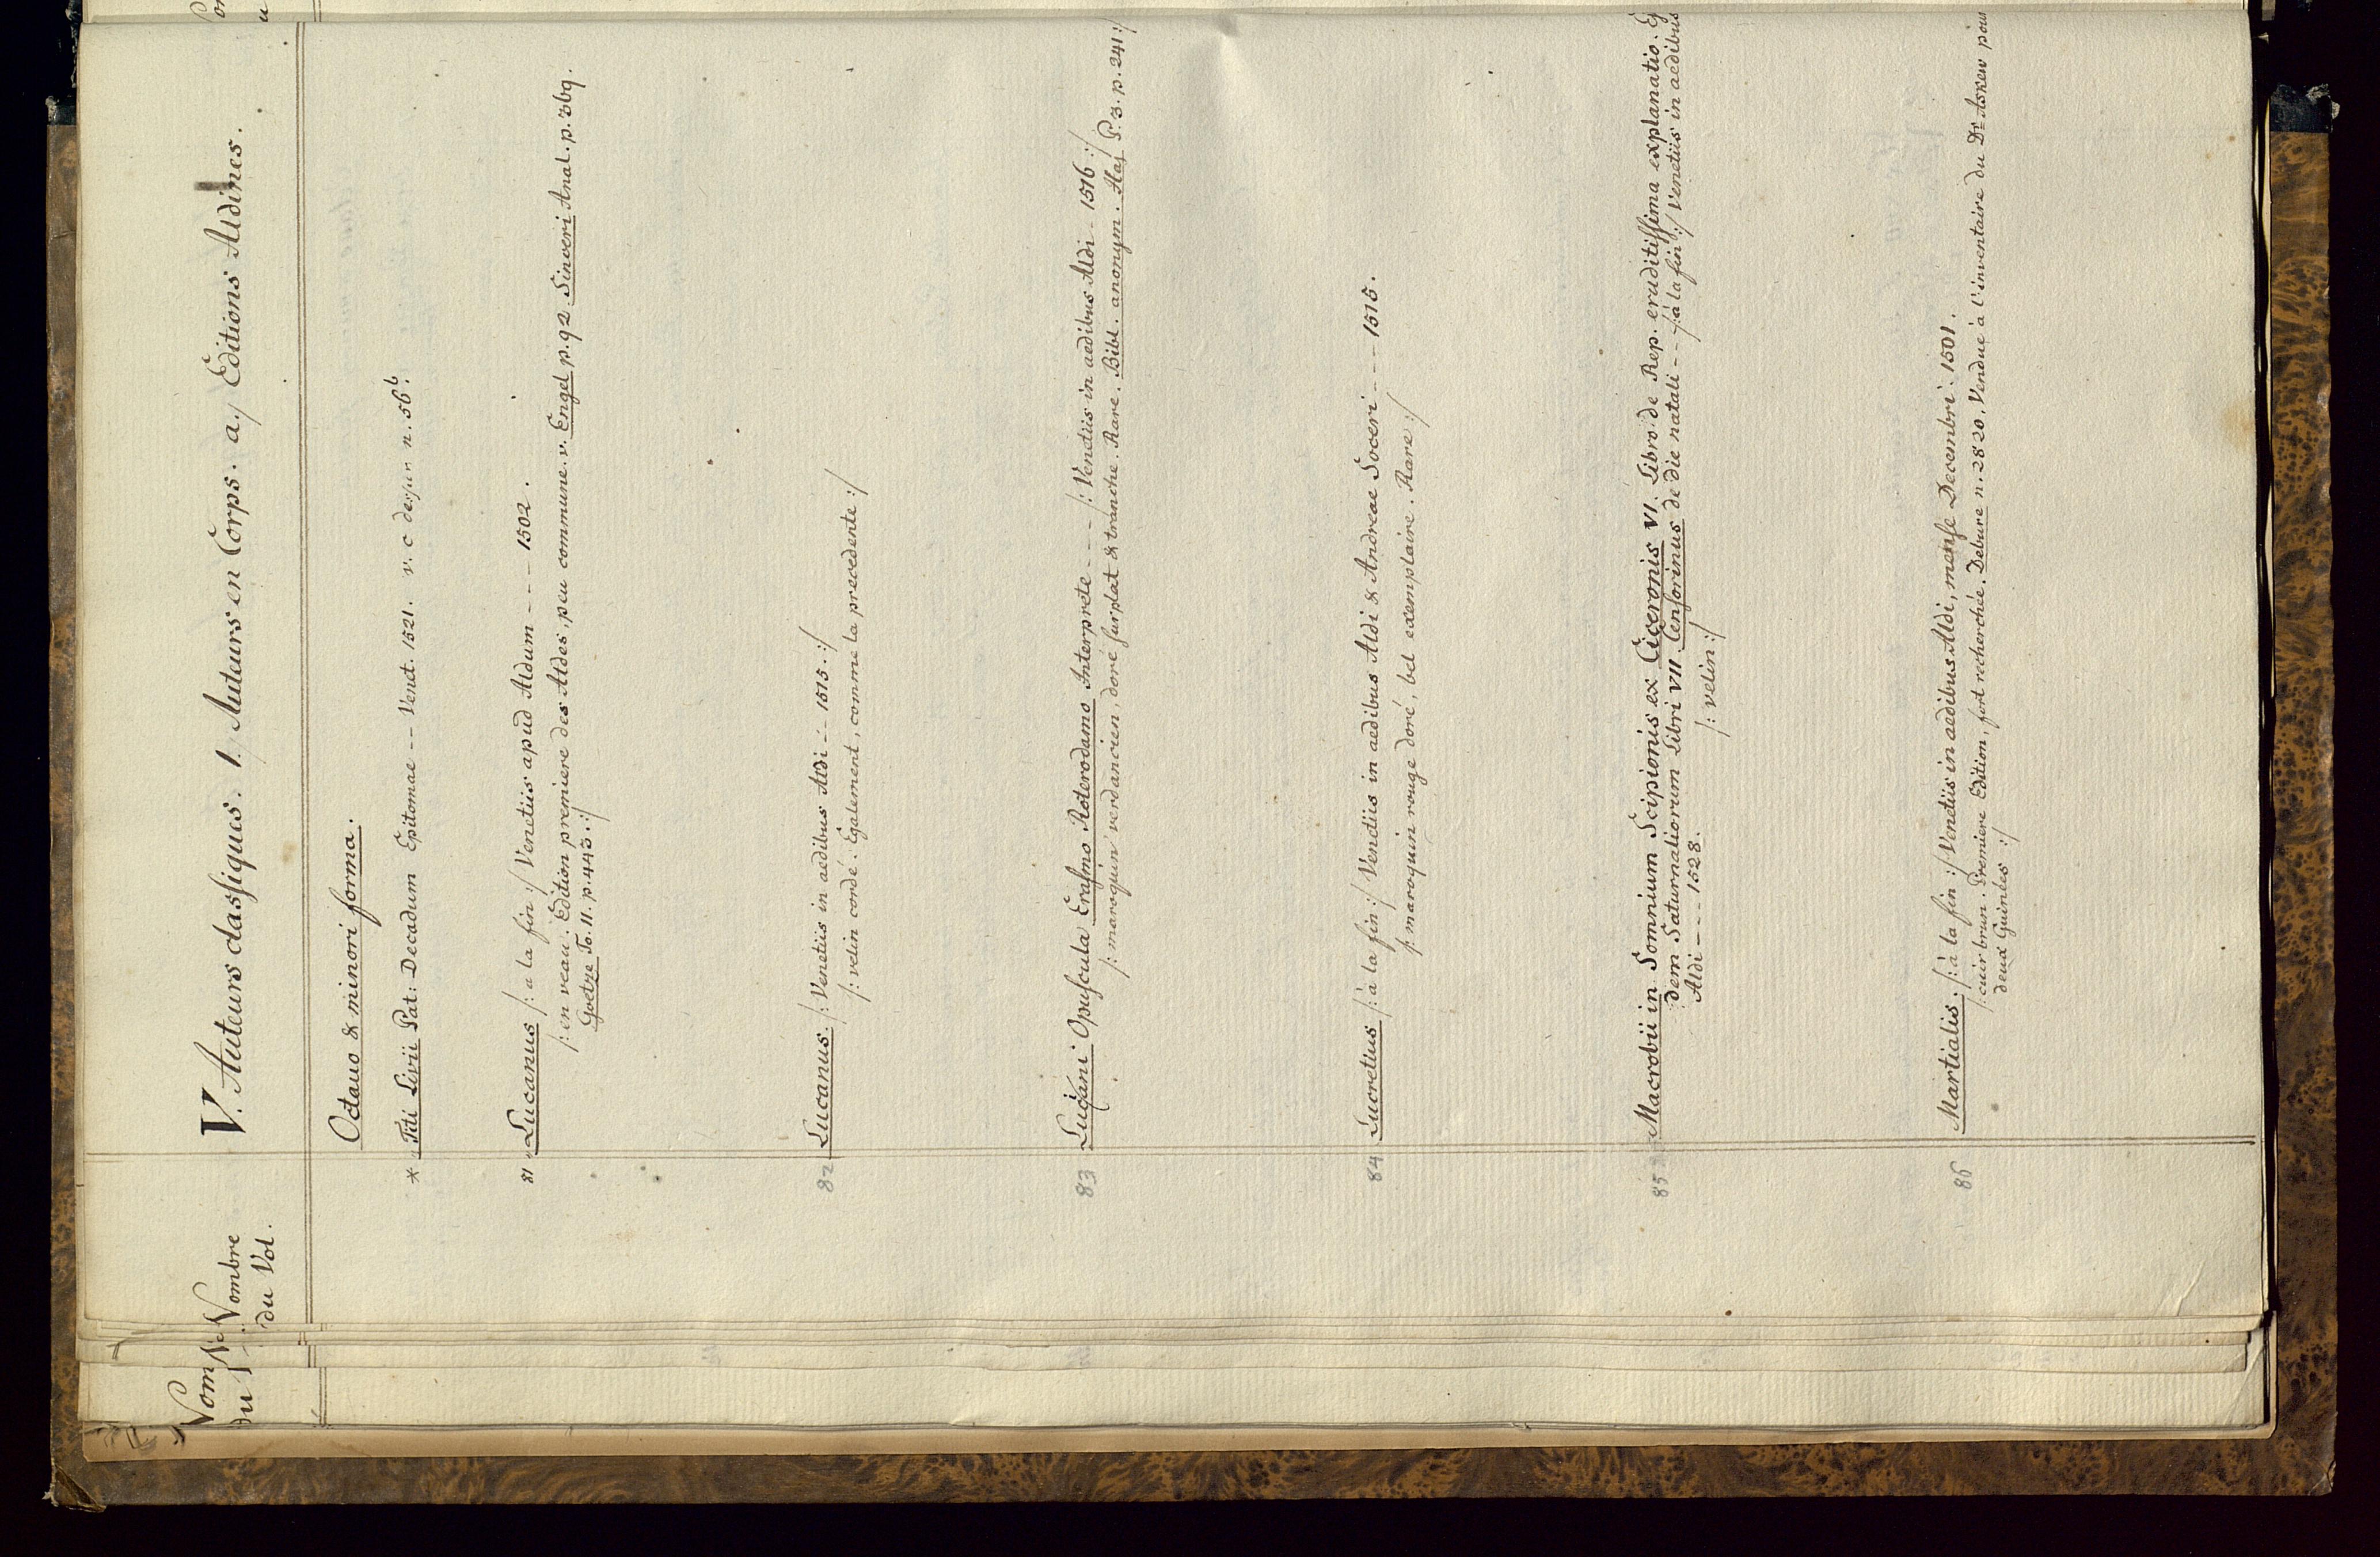 Nombre
du Vol.
V. Auteurs classiques. 1. Auteurs en Corps. a.) Editions Aldines.
Octavo & minori forma.
* Titi Livii Pat: Decadum Epitomae -- Venet. 1521. v. c dessus n. 56b.
81 Lucanus /: a la fin :/ Venetiis apud Aldum --- 1502.
/: en veau. Edition premiere des Aldes, peu commune. v. Engel p. 92 Sinceri Anal. p. 369.
Goetze To. II. p. 443. :/
82 Lucanus. /: Venetiis in aedibus Aldi -- 1515. :/
/: velin cordé. Egalement, comme la precedente :/
83 Luciani Opuscula Erasmo Roterodamo Interprete --- /: Venetiis in aedibus Aldi - 1516 :/
/: maroquin verd ancien, doré sur plat & tranche. Rare. Bibl. anonym. Hag P. 3. p. 241 :/
84 Lucretius /: à la fin :/ Venetiis in aedibus Aldi & Andreae Soceri --- 1515.
/: maroquin rouge doré, bel exemplaire. Rare :/
85 Macrobii in Somnium Scipionis ex Ciceronis VI. Libro de Rep. eruditissima explanatio. Ej
dem Saturnaliorum Libri VII. Censorinus de die natali -- /: à la fin :/ Venetiis in aedibus
Aldi --- 1528.
/: velin :/
86 Martialis. /: à la fin :/ Venetiis in aedibus Aldi, mense Decembri. 1501.
/: cuir brun. Premiere Edition, fort recherchée. Debure n. 2820. Vendue à l'inventaire du Dr Askew pour
deux Guinées :/